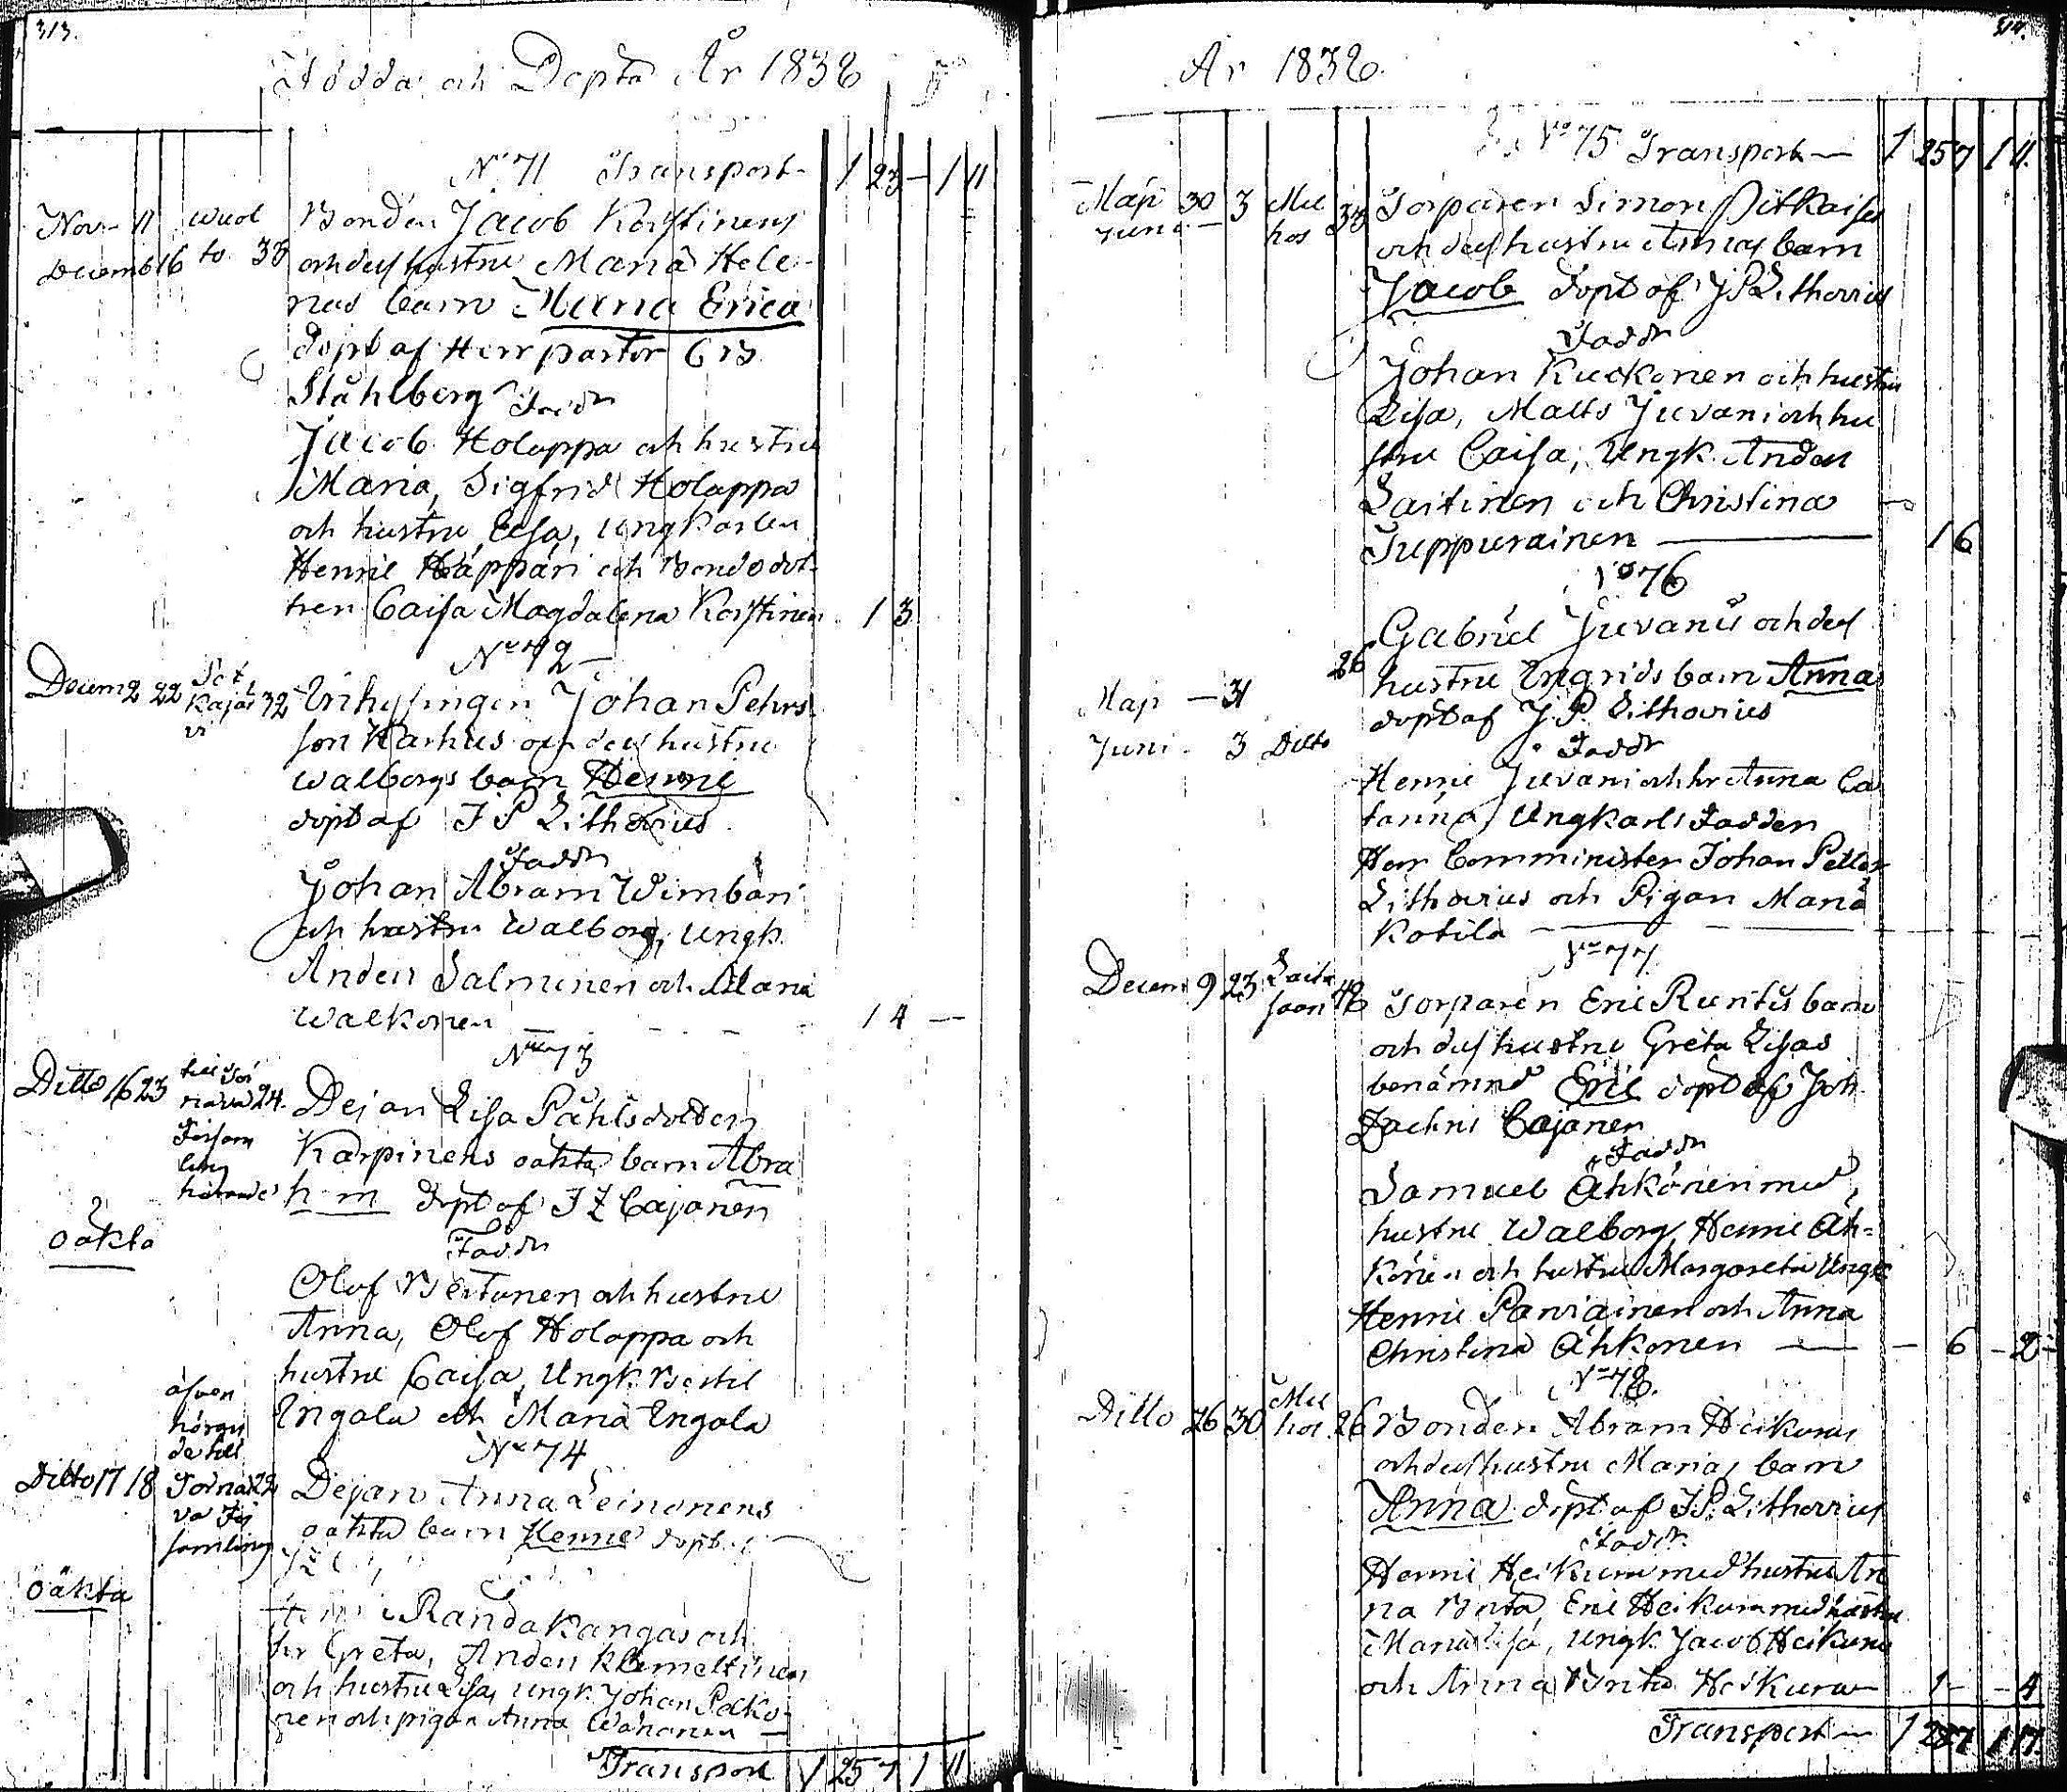 313.
Födda och Döpta År 1832
N° 71 Transport - 1 23 - 1 11
Nov - 11 Wuol Bonden Jacob Korstinens
Decemb 16 to 38 och dess hustru Maria Hele-
nas barn Maria Erica
döpt af Herr pastor
Ståhlberg Faddr
Jacob Holappa och hustru
Maria, Sigfrid Holappa
och hustru Elsa, Ungkarlen
Henric Häppäri och Bondedot-
tren Caisa Magdalena Korstinen 1 3
N° 72
Decem 2 22 Kajá 32 Inhysingen Johan Pehrs
son Karhus och dess hustru
Walborgs barn Henric
döpt af J P Lithovius
Faddr
Johan Abram Wimbäri
och hustru Walborg, Ungk.
Anders Salminen och Maria
Walkonen 1 4 -
N° 73
Ditto 16 23 24. Dejan Lisa Påhlsdotter
Församling Karpinens oäkta barn Abra
hörande h m döpt af J Z Cajanen
oäkta
Faddr
Olof Bertunen och hustru
Anna, Olof Holappa och
hustru Caisa, Ungk. Bertil
Ingala och Maria Ingala
N° 74
äfven
de till
Ditto 17 18 Dejan Anna Leinonens
samling oäkta barn Henric döpt
oäkta
Randakangas och
hr Greta, Anders Klemettinen
och hustru Lisa, Ungk. Johan
nen och pigan Anna
Transport 1 25 7 1 11
314.
År 1832
N° 75 Transport - 1 25 7 1 11.
Maji 30 3 Mu Torparen Simon Pitkäises
Juni - hos och dess hustru Annas barn
Jacob döpt af J P Lithovius
Faddr
Johan Kuckonen och hustru
Lisa, Matts Juvani och hu
stru Caisa, Ungk. Anders
Lartinen och Christina
Tuppurainen 16
N° 76
26 Gabriel Juvanis och dess
Maji - 31 hustru Ingrids barn Anna
Juni - 3 Ditto döpt af J. P. Lithovius
Faddr
Henric Juvani och hr Anna Ca
tarina, Ungkarls Fadder
Herr Comminister Johan Petter
Lithovius och Pigan Maria
Kotila
N° 77
Decem 9 23 Torparen Eric Runtis barn
och dess hustru Greta Lisas
benämnd Eric döpt af Joh.
Zachris Cajanen
Faddr
Samuel Ähkönen med
hustru Walborg, Henric Äh-
könen och hustru Margareta Ungk
Henric Parviainen och Anna
Christina Ähkönen - 6 - 2 -
N° 78.
Ditto 26 30 Mu hos 26 Bonden Abram Heikuras
och dess hustru Marias barn
Anna döpt af J. P. Lithovius
Faddr
Henric Heikura med hustru An
na Brita, Eric Heikura med hustru
Maria Lisa, Ungk. Jacob Heikura
och Anna Brita Heikura 1 - - 4
Transport - 1 287 1 17.